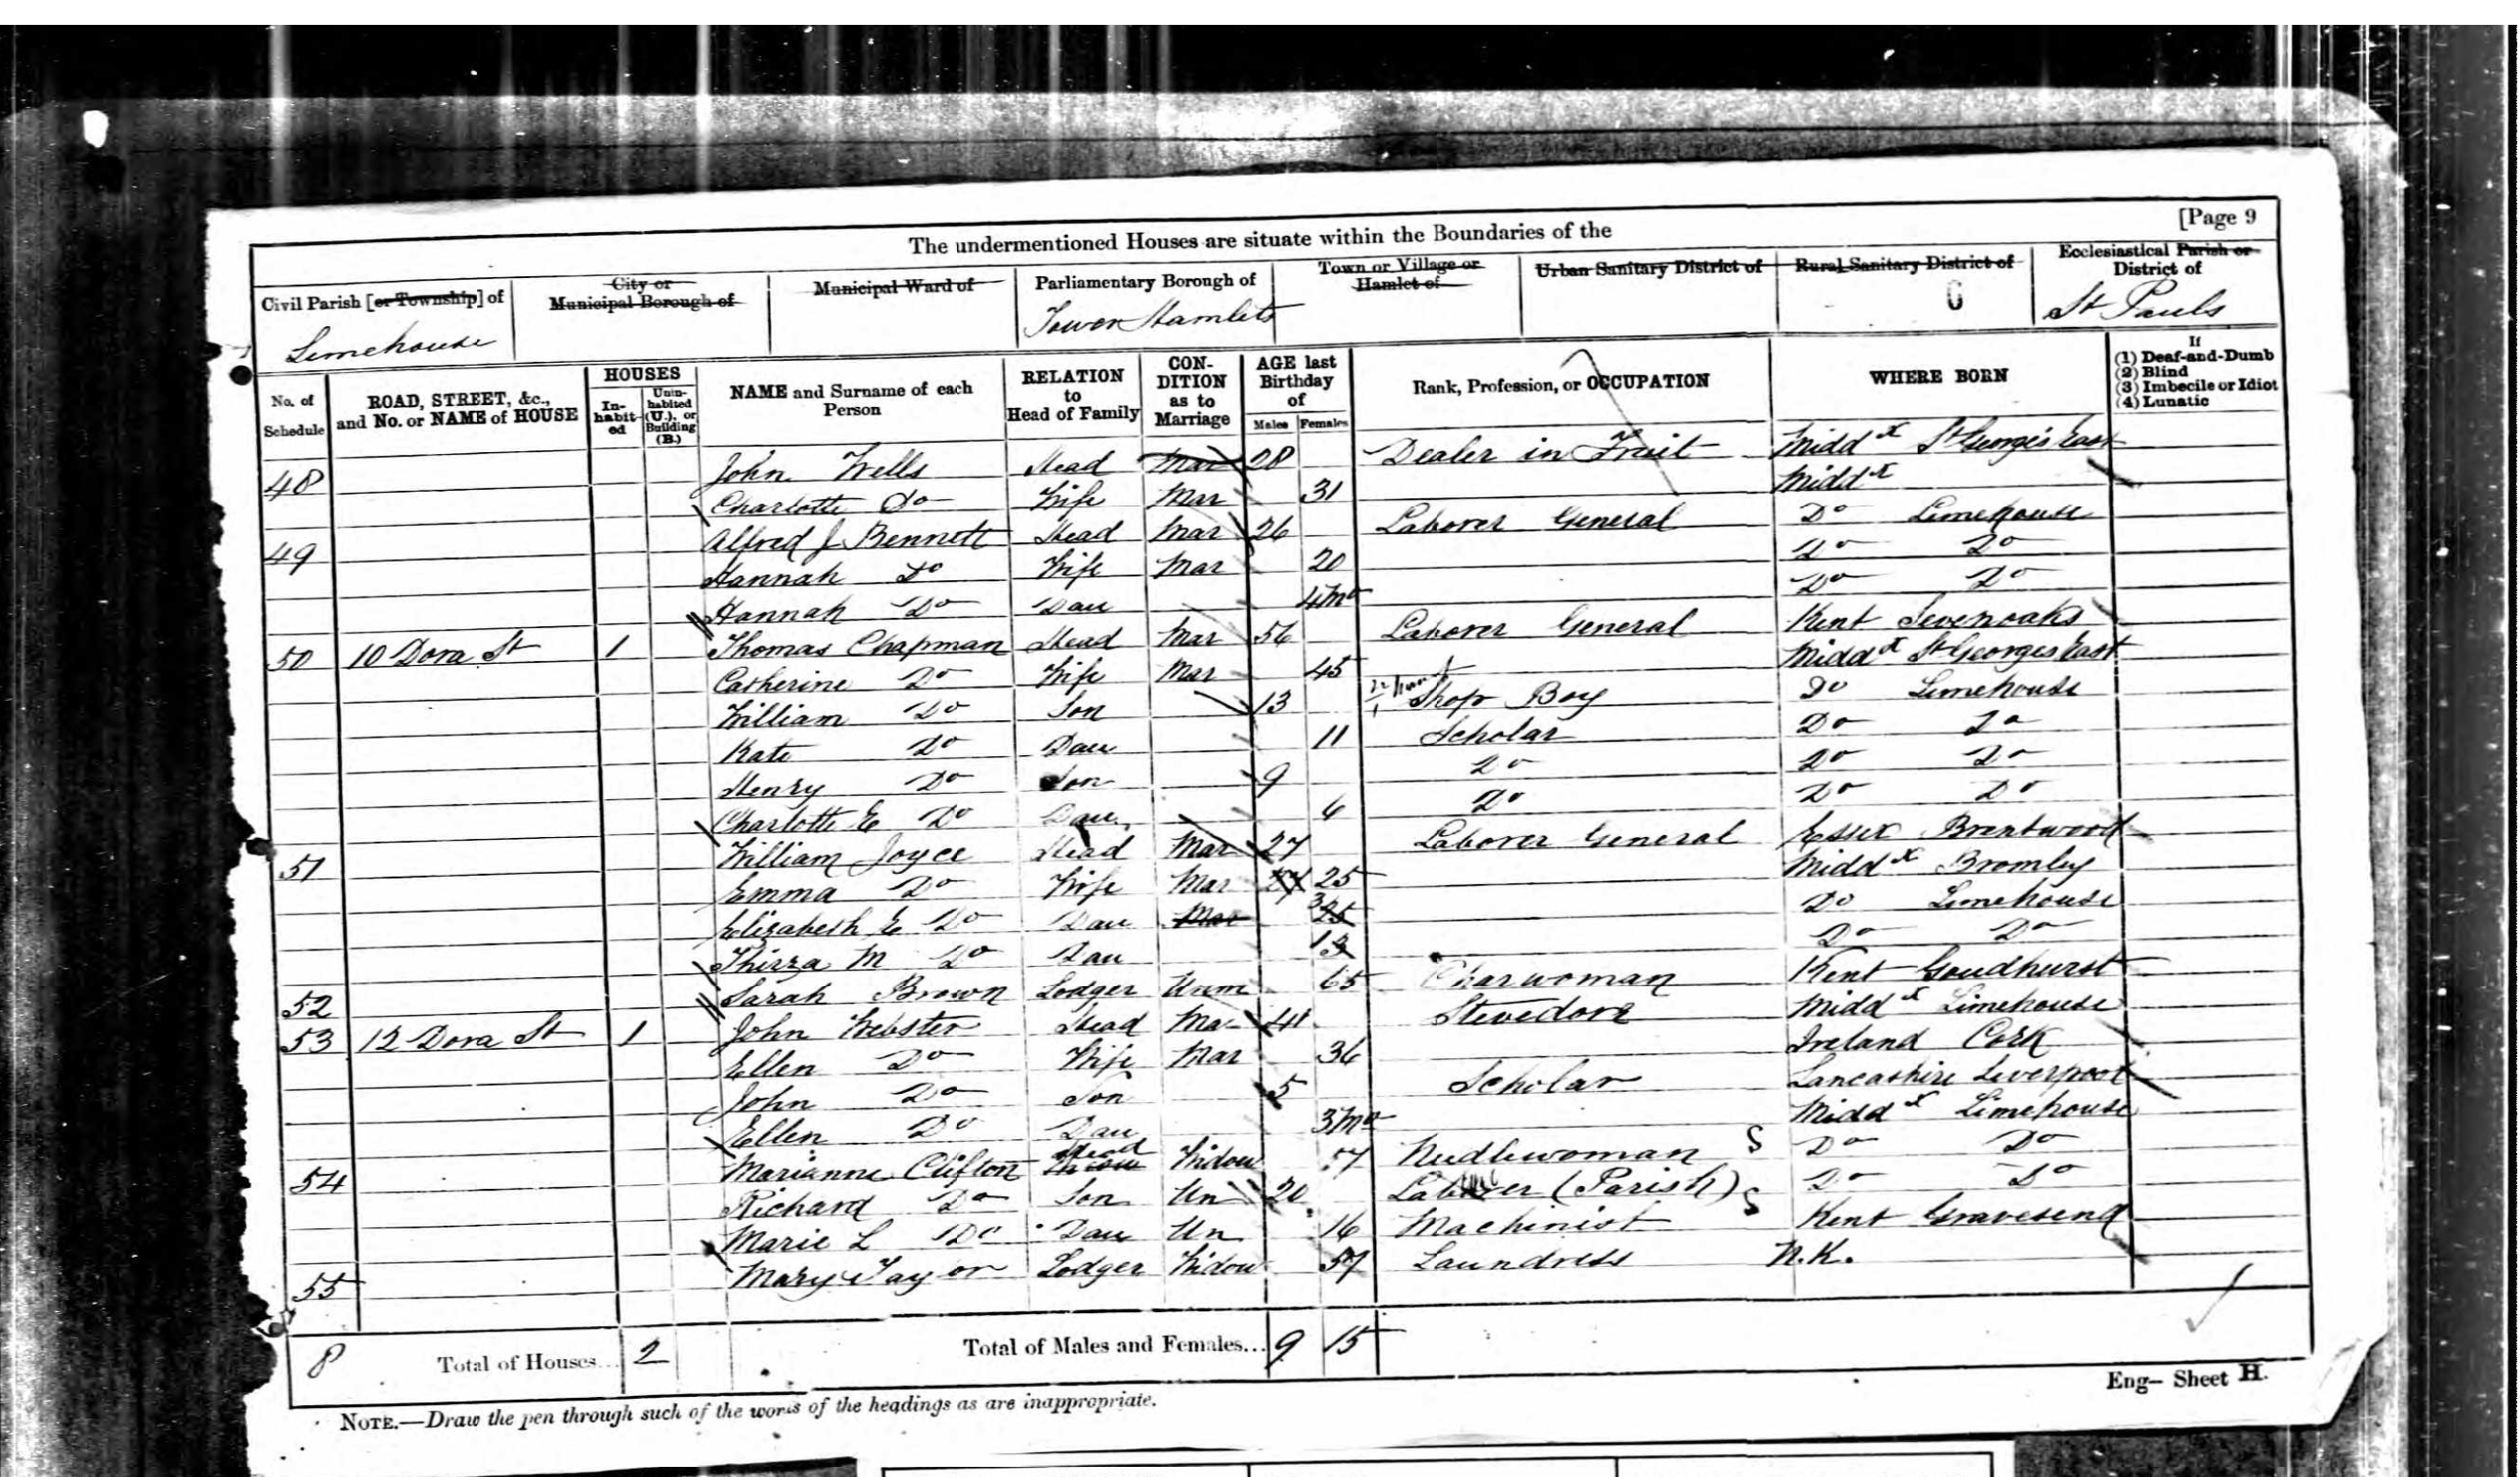 [Page 9
The undermentioned Houses are situate within the Boundaries of the
Civil Parish [or Township] of
City or Municipal Borough of
Municipal Ward of
Parliamentary Borough of
Town or Village or Hamlet of
Urban Sanitary District of
Rural Sanitary District of
Ecclesiastical Parish or District of
Limehouse
Tower Hamlets
St Pauls
No. of Schedule
ROAD, STREET, &c., and No. or NAME of HOUSE
HOUSES
In-habit-ed
Unin-habited (U.), or Building (B.)
NAME and Surname of each Person
RELATION to Head of Family
CON-DITION as to Marriage
AGE last Birthday of
Males Females
Rank, Profession, or OCCUPATION
WHERE BORN
If
(1) Deaf-and-Dumb
(2) Blind
(3) Imbecile or Idiot
(4) Lunatic
48 John Wells Head Mar 28 Dealer in Fruit Middx St Georges East
Charlotte Do Wife Mar 31 Middx
49 Alfred J Bennett Head Mar 26 Laborer General Do Limehouse
Hannah Do Wife Mar 20 Do Do
Hannah Do Dau 4 Mo Do Do
50 10 Dora St 1 Thomas Chapman Head Mar 56 Laborer General Kent Sevenoaks
Catherine Do Wife Mar 45 Middx St Georges East
William Do Son 13 Shop Boy Do Limehouse
Kate Do Dau 11 Scholar Do Do
Henry Do Son 9 Do Do Do
Charlotte E Do Dau 6 Do Do Do
51 William Joyce Head Mar 27 Laborer General Essex Brentwood
Emma Do Wife Mar 27 25 Middx Bromley
Elizabeth E Do Dau Mar 3 25 Do Limehouse
Thirza M Do Dau 1 3 Do Do
52 Sarah Brown Lodger Unm 65 Charwoman Kent Goudhurst
53 12 Dora St 1 John Webster Head Mar 41 Stevedore Middx Limehouse
Ellen Do Wife Mar 36 Ireland Cork
John Do Son 5 Scholar Lancashire Liverpool
Ellen Do Dau 3 Mo Middx Limehouse
54 Marianne Clifton Head Widow 57 Needlewoman S Do Do
Richard Do Son Un 20 Laborer (Parish) S Do Do
Marie L Do Dau Un 16 Machinist S Kent Gravesend
55 Mary Tay or Lodger Widow 57 Laundress N.K.
8 Total of Houses... 2 Total of Males and Females... 9 15
Eng— Sheet H.
NOTE.—Draw the pen through such of the words of the headings as are inappropriate.